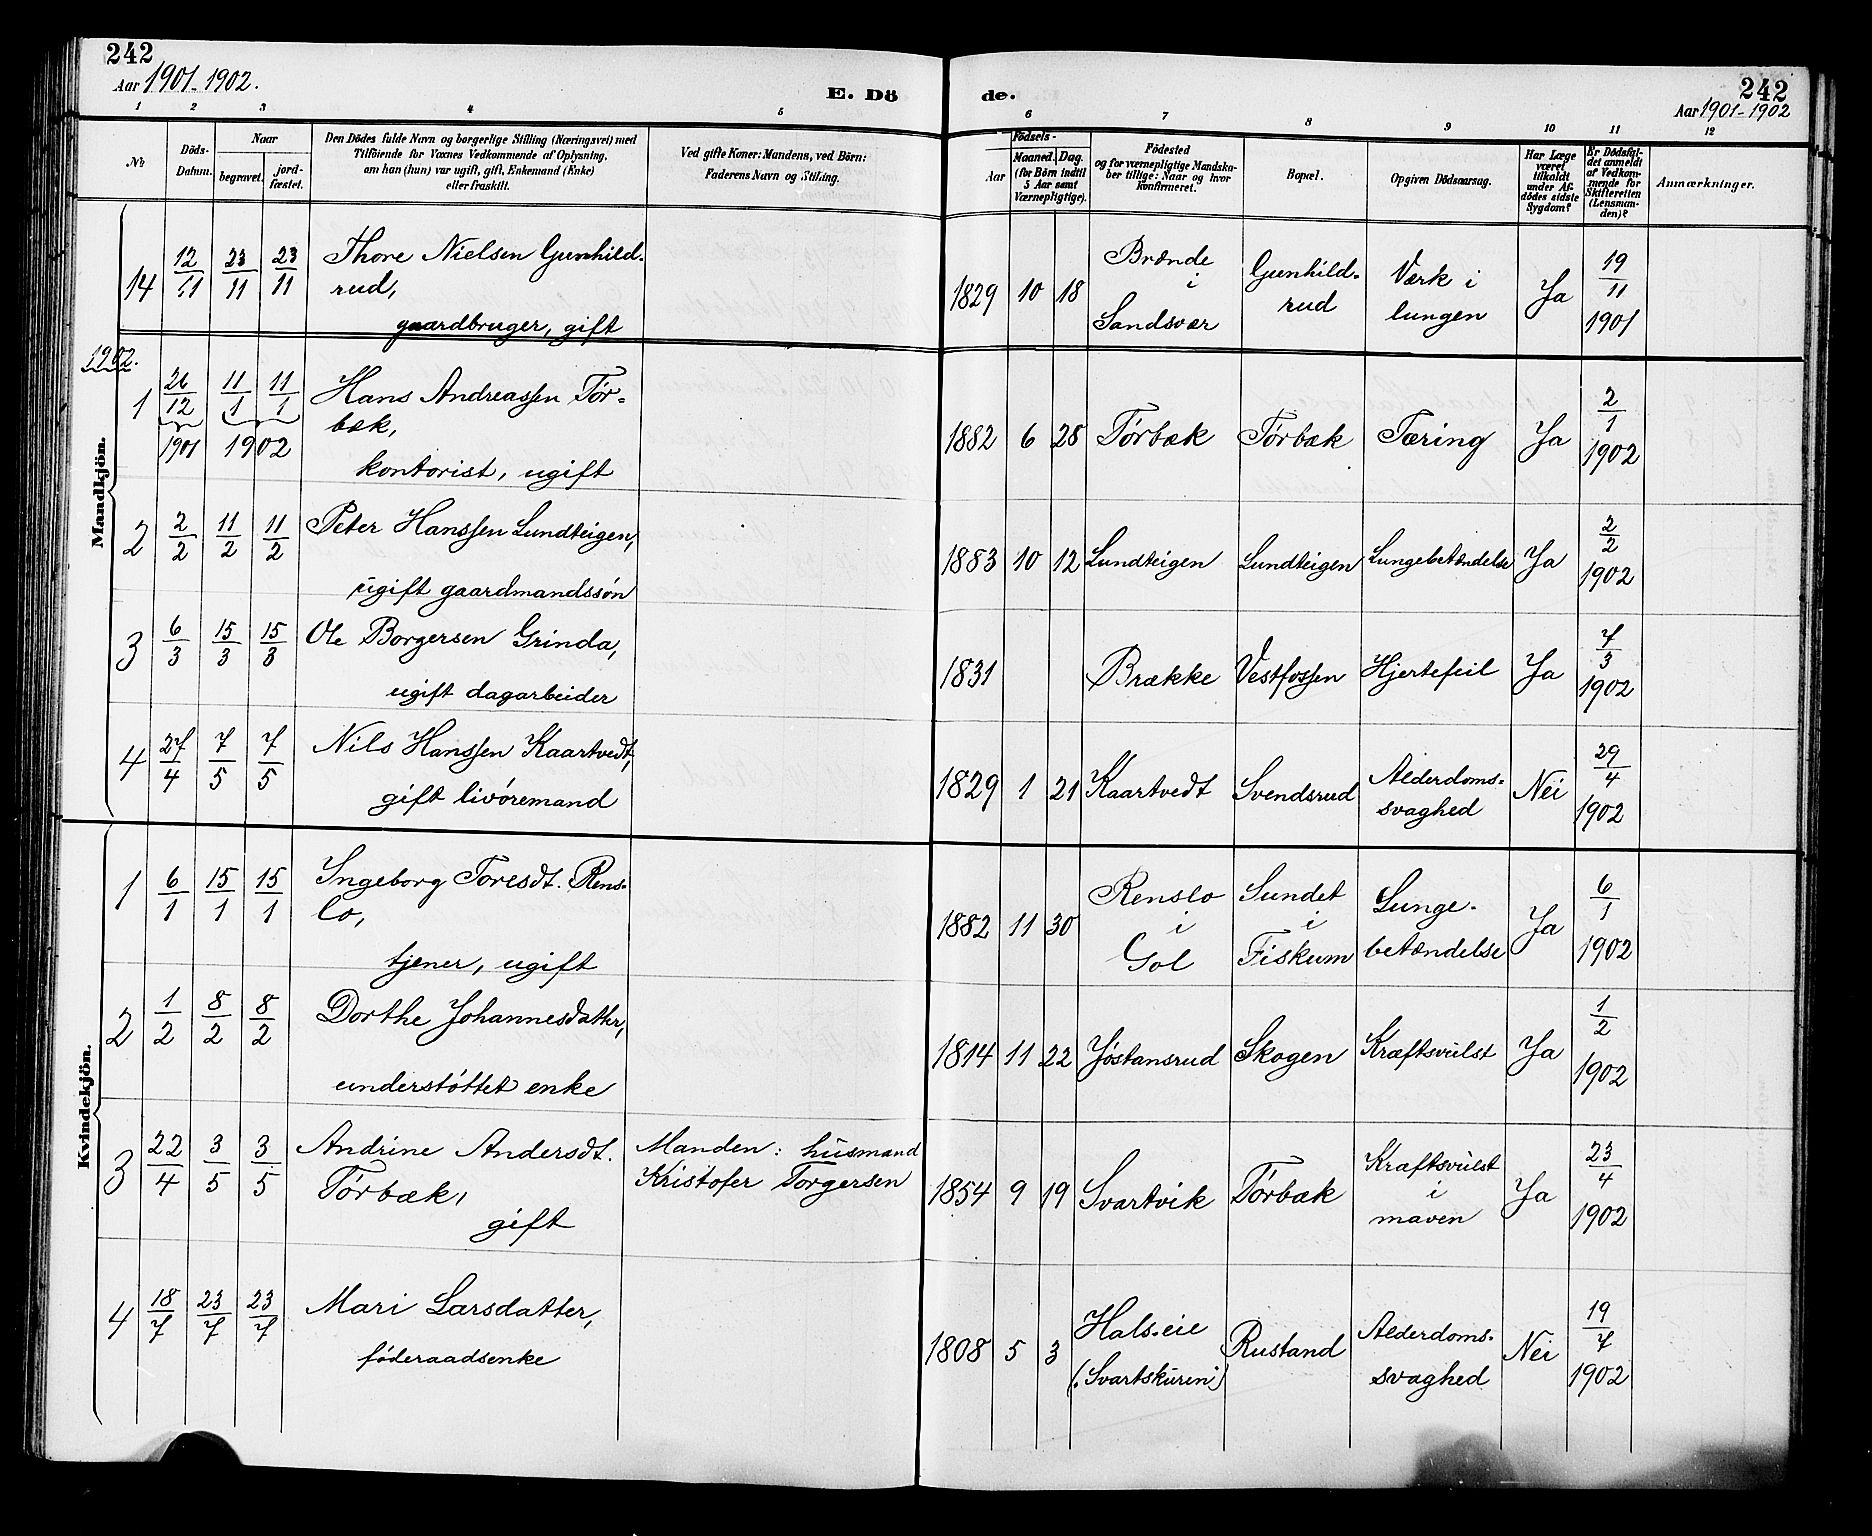 242
Aar 1901-1902.
E. Dö
de.
242
Aar 1901-1902
1 2 3 4 5 6 7 8 9 10 11 12
No
Döds-
Datum.
Naar
begravet.
jord-
fæstet.
Den Dödes fulde Navn og borgerlige Stilling (Næringsvei) med
Tilföiende for Voxnes Vedkommende af Oplysning,
om han (hun) var ugift, gift, Enkemand (Enke)
eller fraskilt.
Ved gifte Koner: Mandens, ved Börn:
Faderens Navn og Stilling.
Födsels-
Aar
Maaned. Dag.
(for Börn indtil
5 Aar samt
Værnepligtige).
Födested
og for værnepligtige Mandska-
ber tillige: Naar og hvor
konfirmeret.
Bopæl.
Opgiven Dödsaarsag.
Har Læge
været
tilkaldt
under Af-
dödes sidste
Sygdom?
Er Dödsfal-
det anmeldt
af Vedkom-
mende for
Skifteretten
(Lensman-
den)?
Anmærkninger.
14 12/11 23/11 23/11 Thore Nielsen Gunhild-
rud,
gaardbruger, gift
1829 10 18 Brænde
i
Sandsvær
Gunhild-
rud
Værk i
lungen
Ja 19/11
1901
1902.
Mandkjön.
1 26/12 11/1 11/1 Hans Andreassen Tör-
bæk,
1901 1902
kontorist, ugift
1882 6 28 Törbæk Törbæk Tæring Ja 2/1
1902
2 2/2 11/2 11/2 Peter Hanssen Lundteigen,
ugift gaardmandssön
1883 10 12 Lundteigen Lundteigen Lungebetændelse Ja 2/2
1902
3 6/3 15/3 15/3 Ole Borgersen Grinda,
ugift dagarbeider
1831 Brække Vestfossen Hjertefeil Ja 7/3
1902
4 27/4 7/5 7/5 Nils Hanssen Kaartvedt,
gift livöremand
1829 1 21 Kaartvedt Svendsrud Alderdoms-
svaghed
Nei 29/4
1902
Kvindekjön.
1 6/1 15/1 15/1 Ingeborg Toresdt. Rens-
lo,
tjener, ugift
1882 11 30 Renslo
i
Gol
Sundet
i
Fiskum
Lunge-
betændelse
Ja 6/1
1902
2 1/2 8/2 8/2 Dorthe Johannesdatter,
understöttet enke
1814 11 22 Jöstansrud Skogen Kræftsvulst Ja 1/2
1902
3 22/4 3/5 3/5 Andrine Andersdt.
Törbæk,
gift
Manden: husmand
Kristofer Torgersen
1854 9 19 Svartvik Törbæk Kræftsvulst
i
maven
Ja 23/4
1902
4 18/7 23/7 23/7 Mari Larsdatter,
föderaadsenke
1808 5 3 Hals-eie
(:Svartskuren:)
Rustand Alderdoms-
svaghed
Nei 19/7
1902